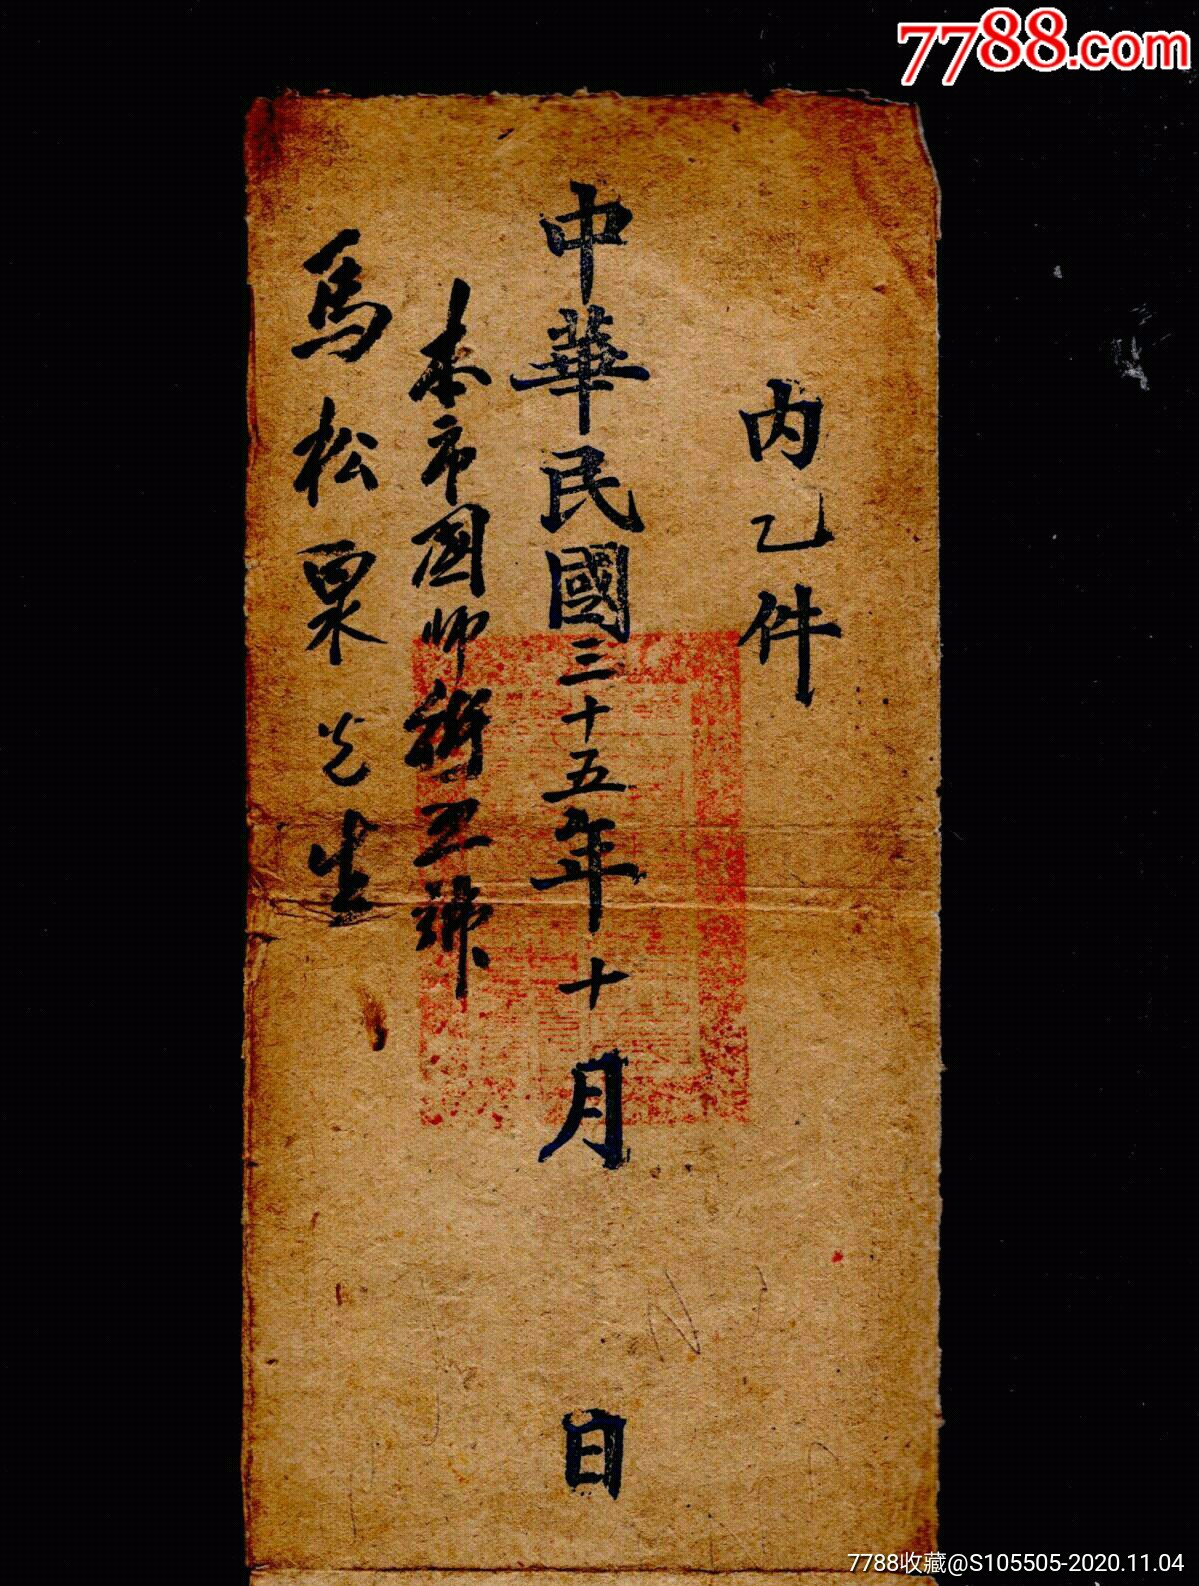 7788.com
内乙件
中華民國三十五年十月 日
本市國師街五號
馬松泉先生
7788收藏@S105505-2020.11.04